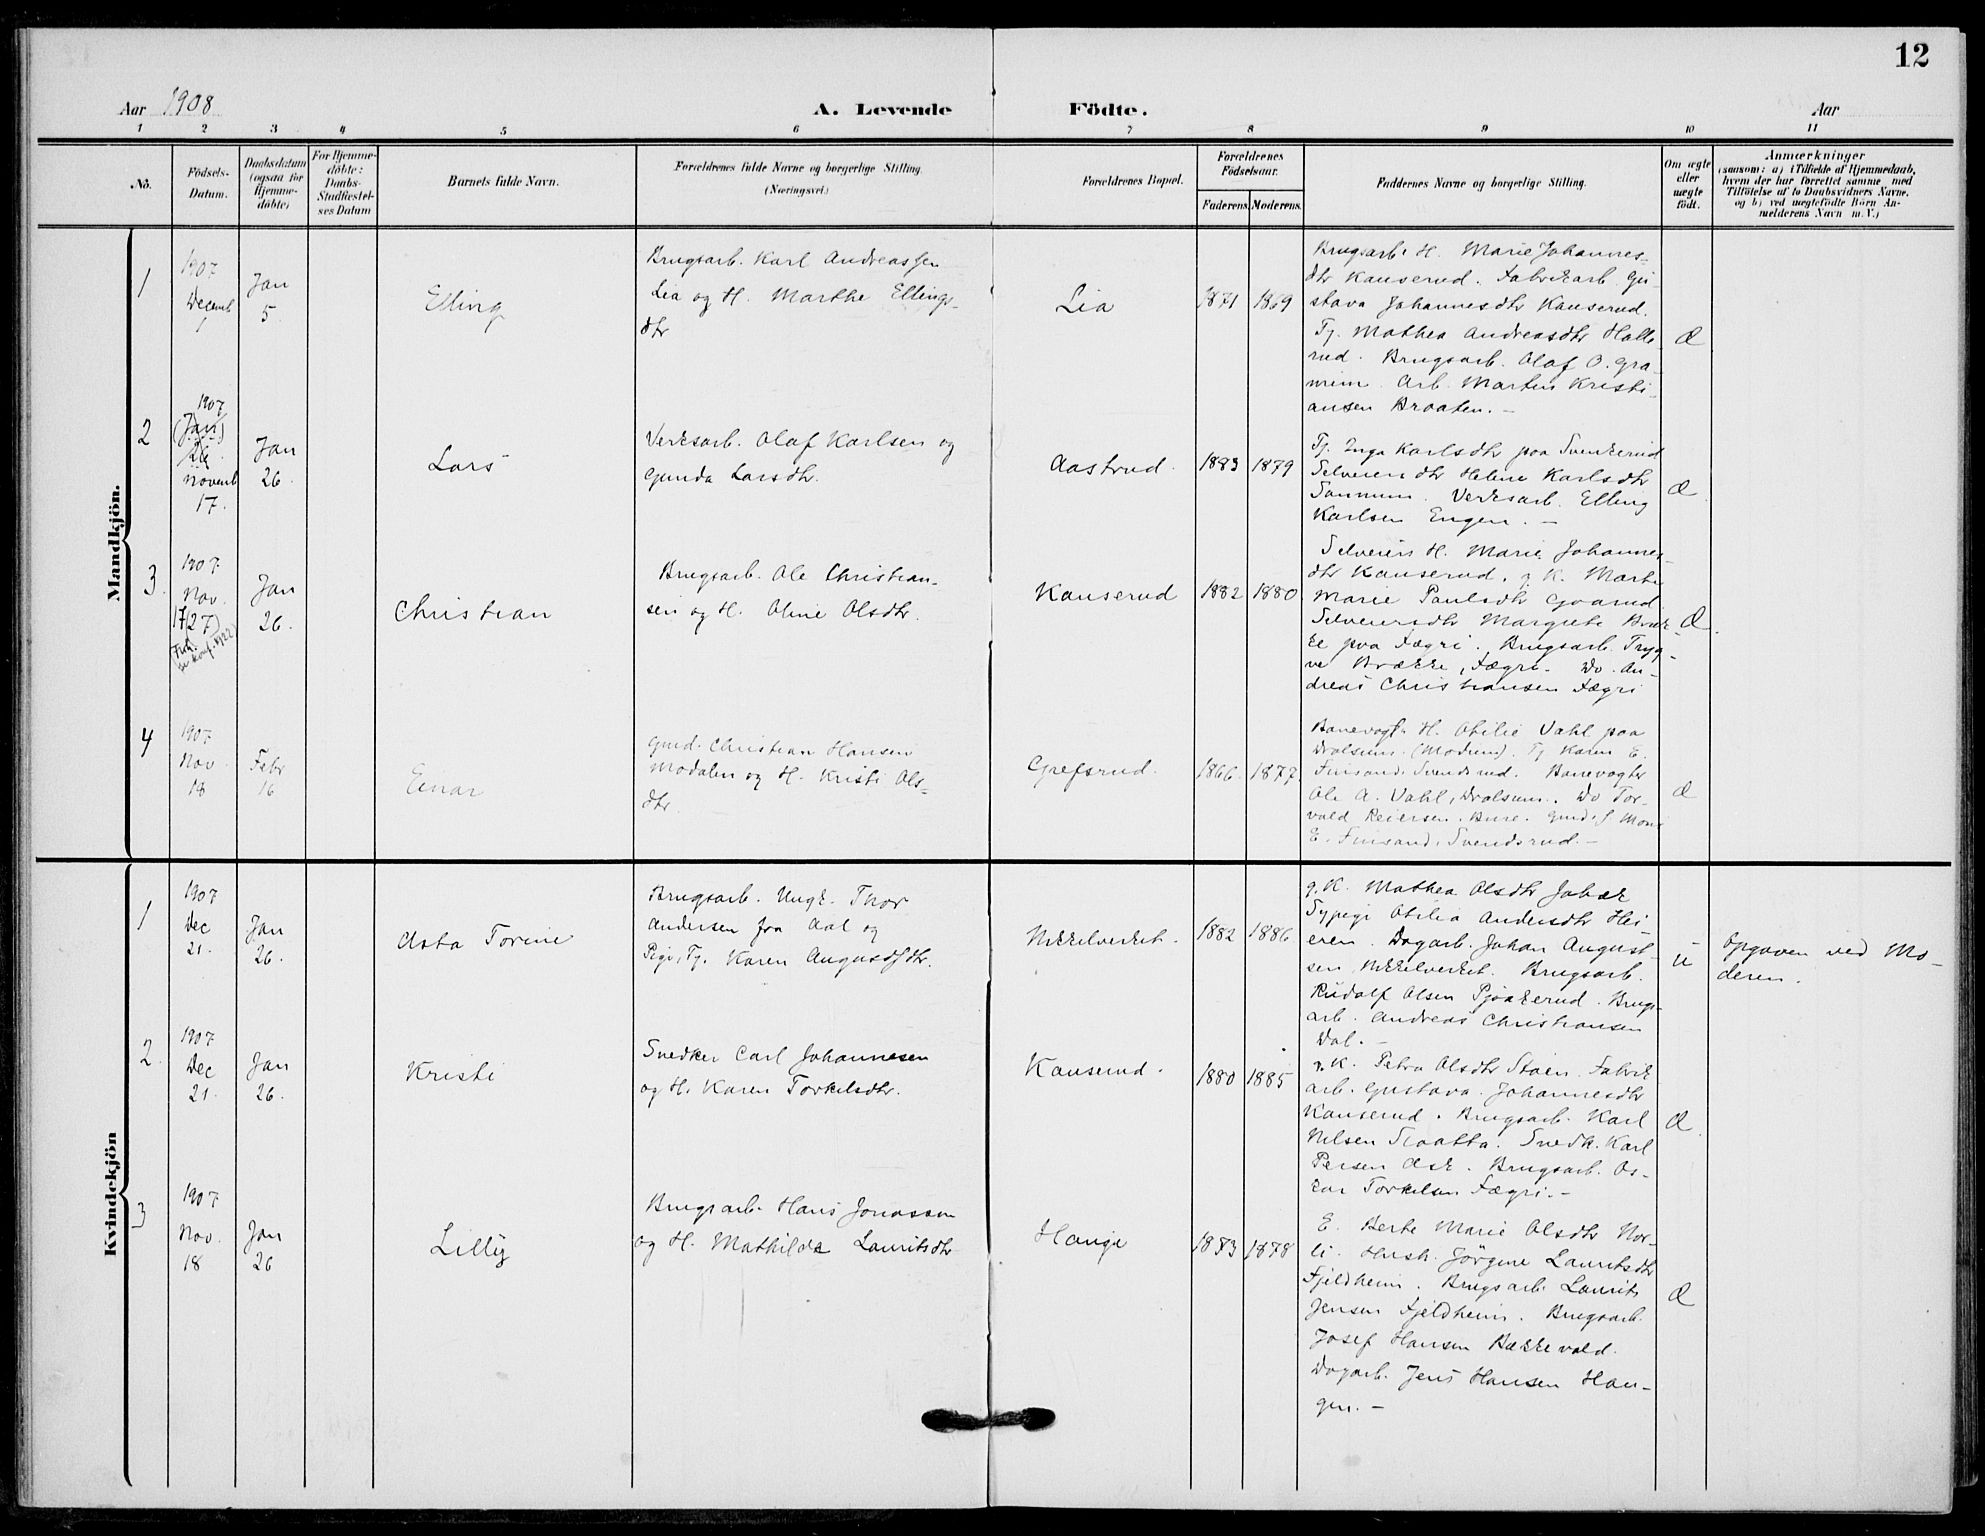 12
Aar 1908
A. Levende Födte.
Aar
1 2 3 4 5 6 7 8 9 10 11
No.
Födsels-
Datum.
Daabsdatum
(ogsaa for
Hjemme-
döbte)
For Hjemme-
döbte:
Daabs-
Stadfæstel-
ses Datum
Barnets fulde Navn.
Forældrenes fulde Navne og borgerlige Stilling.
(Næringsvei.)
Forældrenes Bopæl.
Forældrenes
Födselsaar.
Faderens. Moderens.
Faddernes Navne og borgerlige Stilling.
Om ægte
eller
uægte
födt.
Anmærkninger
(saasom: a) i Tilfælde af Hjemmedaab,
hvem der har forrettet samme med
Tilföielse af to Daabsvidners Navne,
og b) ved uægtefödte Börn An-
melderens Navn m. V.)
Mandkjön.
1
1907
Decemb
1
Jan
5.
Elling
Brugsarb. Karl Andreassen
Lia og H. Marthe Ellings-
dtr
Lia
1871 1869
Brugsarb. H. Marie Johannes-
dtr Kanserud. Fabrikarb. Gu-
stava Johannesdtr Kanserud.
Tj. Mathea Andreasdtr Halle-
rud. Brugsarb. Olaf O. Gra-
Arb. Martin Kristi-
ansen Braaten. –
Æ
2
1907
(Jan)
26
novemb
17.
Jan
26.
Lars
Verksarb. Olaf Karlsen og
Gunda Larsdtr.
Aastrud.
1883 1879
Tj. Inga Karlsdtr paa Svenkerud
Selveierdtr Helene Karlsdtr
Verksarb. Elling
Karlsen Engen. –
Æ.
3.
1907.
Nov.
17(27)
Jan
26.
Christian
Brugsarb. Ole Christian-
sen og H. Oline Olsdtr.
Kanserud
1882 1880
Selveiers H. Marie Johannes-
dtr Kanserud. g. K. Marte
Marie Paulsdtr Gaarud.
Selveiersdtr Margrete Bræk-
ke paa Fægri. Brugsarb. Tryg-
ve Brække, Fægri. Do. An-
dreas Christiansen Fægri
Æ.
4
1907.
Nov.
18
Febr
16
Einar
Gmd. Christian Hansen
Modalen og H. Kristi Ols-
dtr
Grefsrud.
1866. 1877
Banevogt. H. Otilie Vahl paa
Dralsum. (Modum). Tj. Karen E.
Finsand, Svendsrud. Banevogter
Ole A. Vahl, Dralsum. Do Tor-
vald Reiersen. Bure. Gmd. S.
E. Finsand, Svendsrud. –
Æ
Kvindekjön
1
1907
Dec
21.
Jan
26.
Asta Torine
Brugsarb. Ungk. Thor
Andersen fra Aal og
Pige, Tj. Karen Augustsdtr.
Nikkelverket.
1882 1886
g. K. Mathea Olsdtr
Sypige Otilia Andersdtr Hei-
eren. Dagarb. Johan August-
sen Nikkelverket. Brugsarb.
Rudolf Olsen Pjaakerud. Brugs-
arb. Andreas Christiansen
Dal. –
u
Opgaven ved Mo-
deren.
2.
1907.
Dec
21.
Jan
26.
Kristi
Snedker Carl Johannesen
og H. Karen Torkelsdtr.
Kanserud.
1880 1885
g. K. Petra Olsdtr Støen. Fabrik
arb. Gustava Johannesdtr
Kanserud. Brugsarb. Karl
Nilsen Slaatta. Snedk. Karl
Persen Ask. Brugsarb. Os-
kar Torkelsen Fægri. –
Æ.
3
1907.
Nov.
18
Jan
26
Lilly
Brugsarb. Hans Jonassen
og H. Mathilde Lauritsdtr
Hauge
1873 1878
E. Berte Marie Olsdtr Nor-
li. Hush. Jörgine Lauritsdtr
Fjeldheim. Brugsarb. Laurits
Jensen Fjeldheim. Brugsarb.
Josef Hansen Bækkevold.
Dagarb. Jens Hansen Hau-
gen. –
Æ